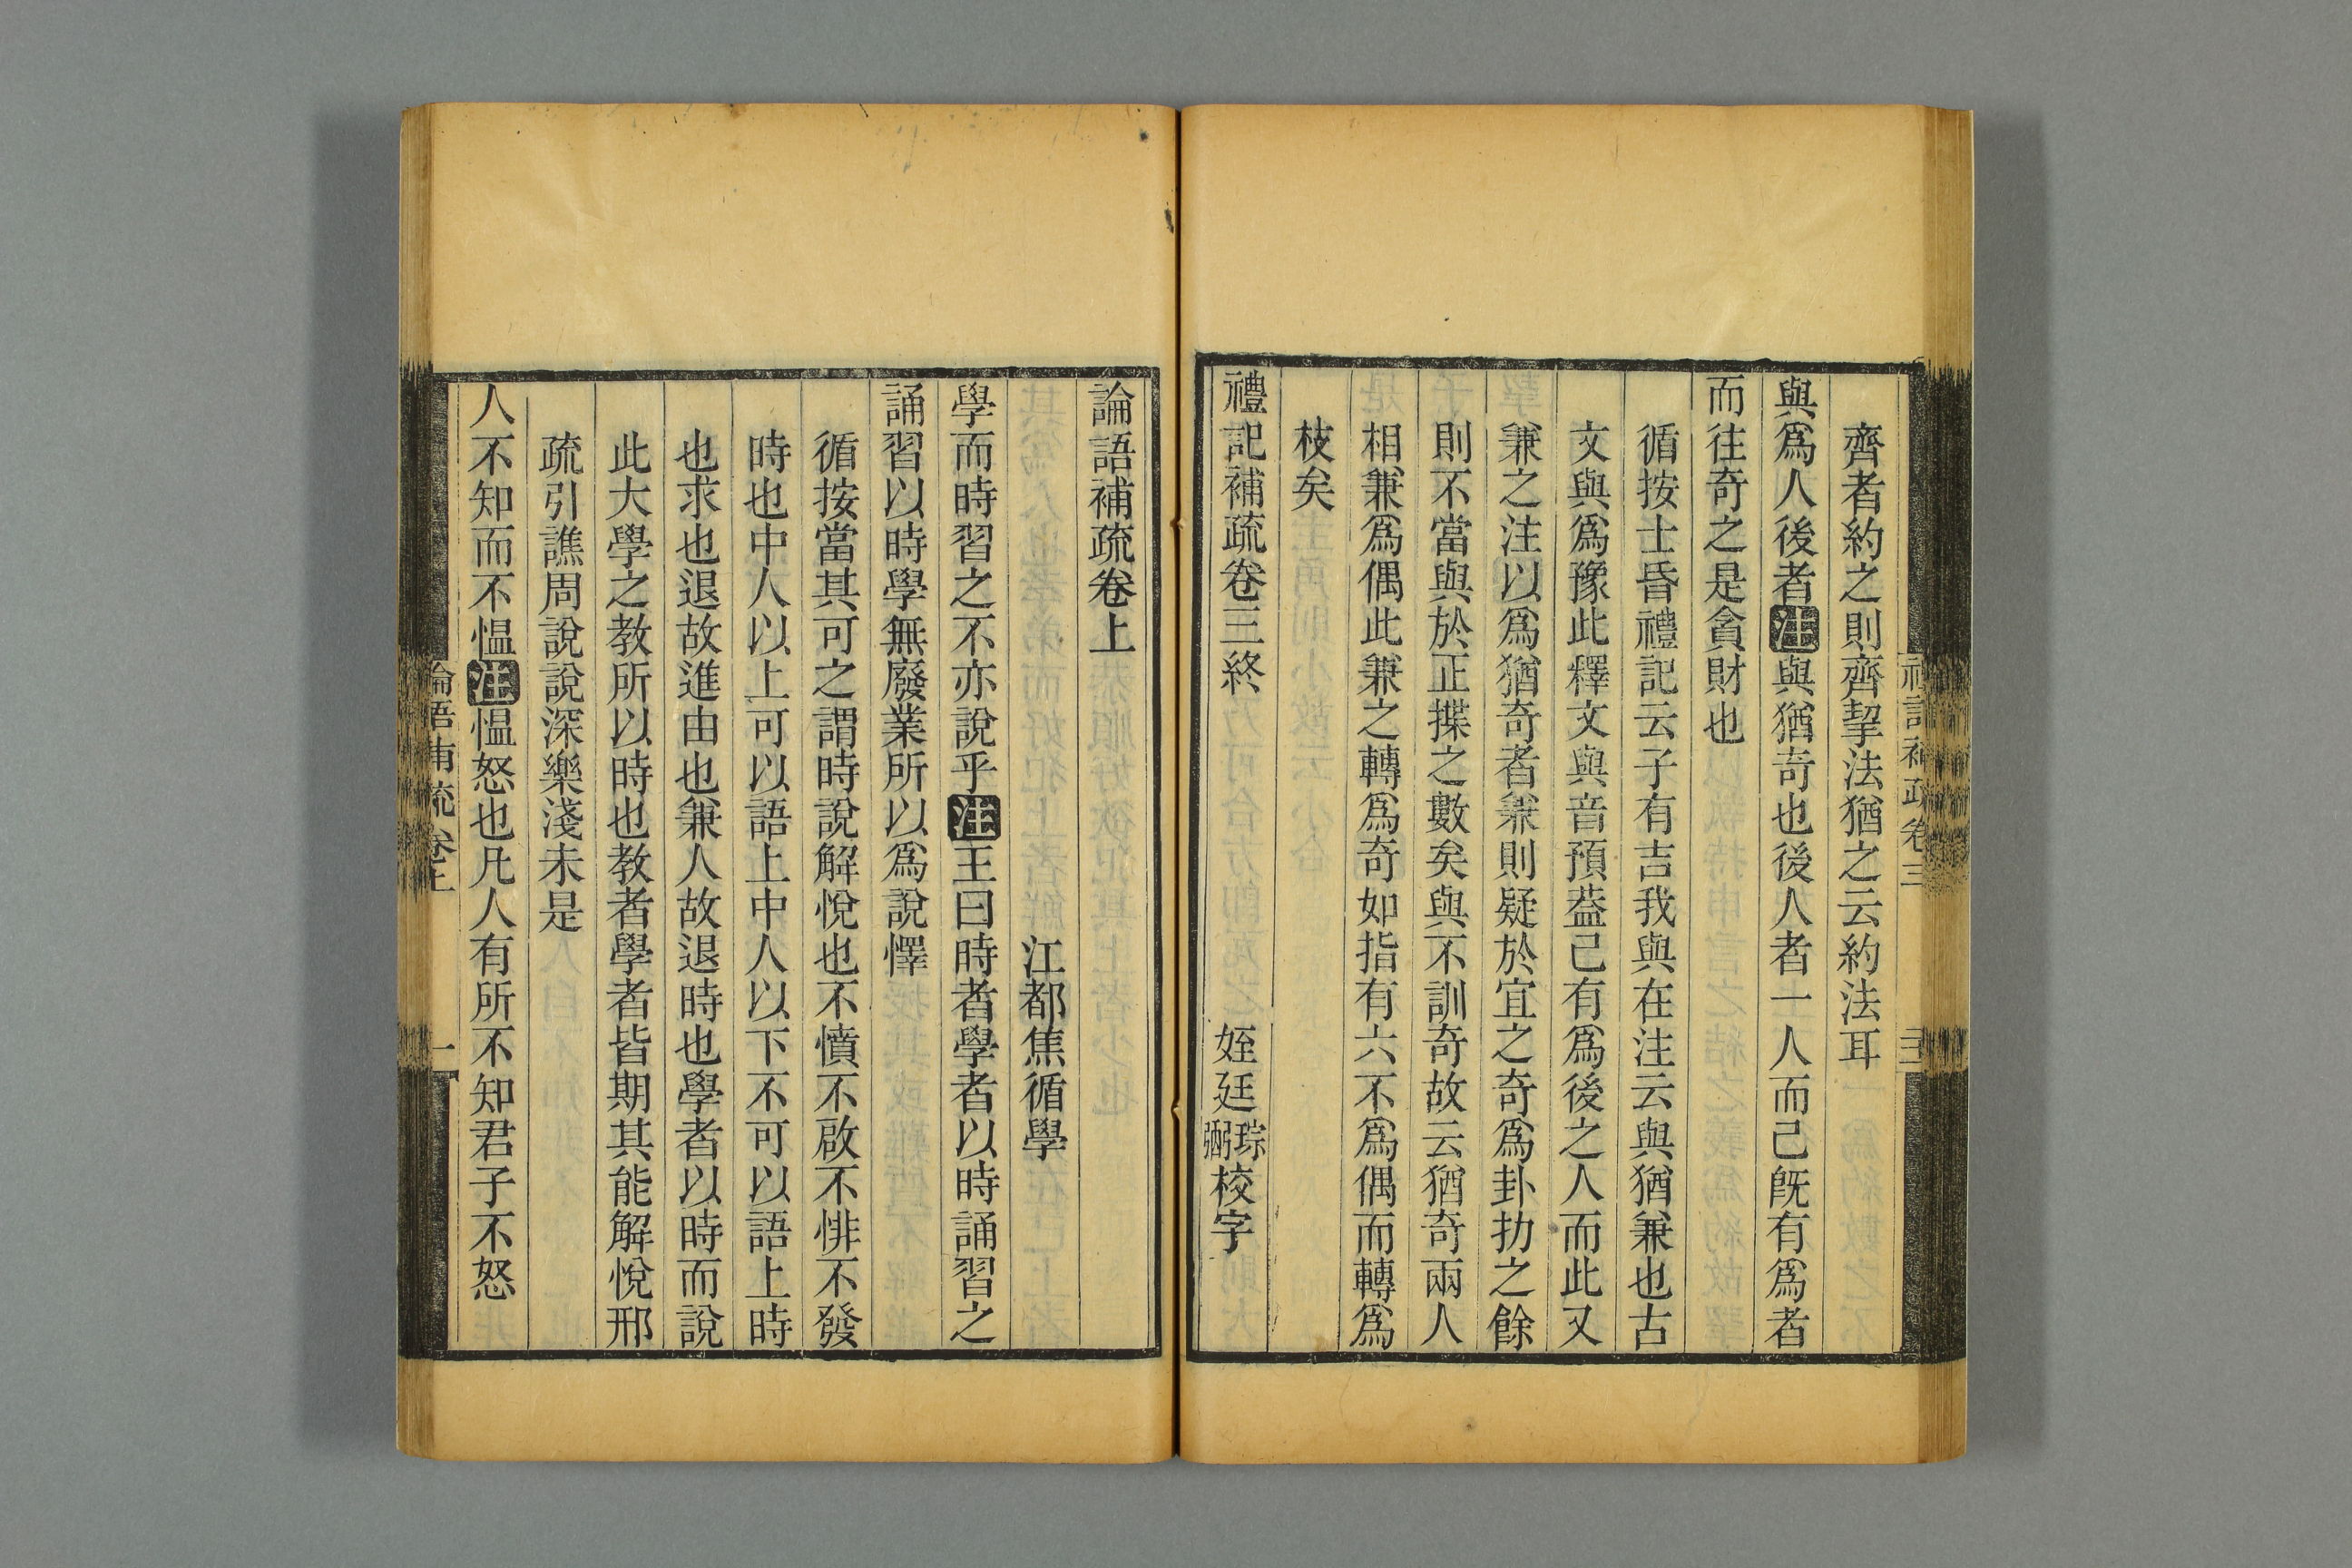 齊者約之則齊挈法猶之云約法耳
與爲人後者注與猶奇也後人者一人而已旣有爲者
而往奇之是貪財也
循按士昏禮記云子有吉我與在注云與猶兼也古
文與爲豫此釋文與音預葢已有爲後之人而此又
兼之注以爲猶奇者兼則疑於宜之奇爲卦扐之餘
則不當與於正揲之數矣與不訓奇故云猶奇兩人
相兼爲偶此兼之轉爲奇如指有六不爲偶而轉爲
枝矣
禮記補疏卷三終
姪廷琮琥校字
論語補疏卷上
江都焦循學
學而時習之不亦說乎注王曰時者學者以時誦習之
誦習以時學無廢業所以爲說懌
循按當其可之謂時說解悅也不憤不啟不悱不發
時也中人以上可以語上中人以下不可以語上時
也求也退故進由也兼人故退時也學者以時而說
此大學之教所以時也教者學者皆期其能解悅邢
疏引譙周說說深樂淺未是
人不知而不慍注慍怒也凡人有所不知君子不怒
論語補疏卷上
一
禮記補疏卷三